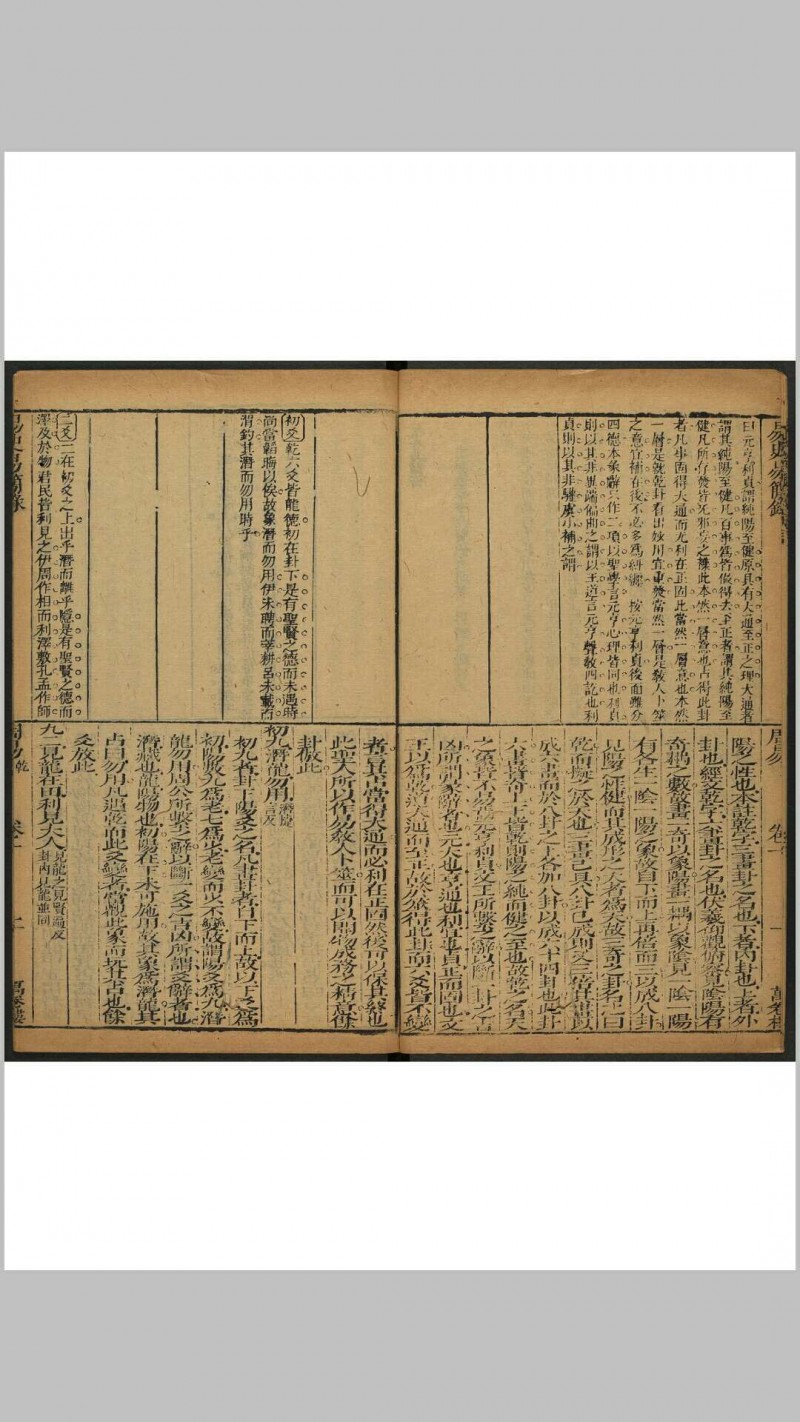 曰元亨利貞謂純陽至健原具有大通至正之理大通者
謂其純陽至健凡百事為皆做得去至正者謂其純陽至
健凡所存發皆無邪妄之雜此本然一層意也占得此卦
者凡事固得大通而尤利在正固此當然一層意也本然
一層是就乾卦看出妙用宜重發當然一層是教人卜筮
之意宜補在後不必多為糾纏 按元亨利貞後面雖分
四德本彖辭只作二項以聖學言元亨心理皆同也利貞
則以其非異端偏曲之謂以王道言元亨聲教四訖也利
貞則以其非驩虞小補之謂
周易
卷一
一
陽之性也本註乾字三畫卦之名也下者內卦也上者外
卦也經文乾字六畫卦之名也伏羲仰觀俯察見陰陽有
奇耦之數故畫一奇以象陽畫一耦以象陰見一陰一陽
有各生一陰一陽之象故自下而上再倍而三以成八卦
見陽之性健而其成形之大者為天故三奇之卦名之曰
乾而擬之於天也三畫已具八卦已成則又三倍其畫以
成六畫而於八卦之上各加八卦以成六十四卦也此卦
六畫皆奇上下皆乾則陽之純而健之至也故乾之名天
之象皆不易焉元亨利貞文王所繫之辭以斷一卦之吉
凶所謂彖辭者也元大也亨通也利宜也貞正而固也文
王以為乾道大通而至正故於筮得此卦而六爻皆不變
者言其占當得大通而必利在正固然後可以保其終也
此聖人所以作易教人卜筮而可以開物成務之精意餘
卦放此
初爻乾六爻皆龍德初在卦下是有聖賢之德而未遇時
尚當韜晦以俟故象潛而勿用伊未聘而莘耕呂未載而
渭釣其潛而勿用時乎
初九潛龍勿用潛捷言反
初九者卦下陽爻之名凡畫卦者自下而上故以下爻為
初陽數九為老七為少老變而少不變故謂陽爻為九潛
龍勿用周公所繫之辭以斷一爻之吉凶所謂爻辭者也
潛藏也龍陽物也初陽在下未可施用故其象為潛龍其
占曰勿用凡遇乾而此爻變者當觀此象而玩其占也餘
爻放此
二爻二在初爻之上出乎潛而離乎隱是有聖賢之德而
澤及於物君民皆利見之伊周作相而利澤敷孔孟作師
九二見龍在田利見大人見龍之見賢遍反卦內見龍並同
周易
乾
卷一